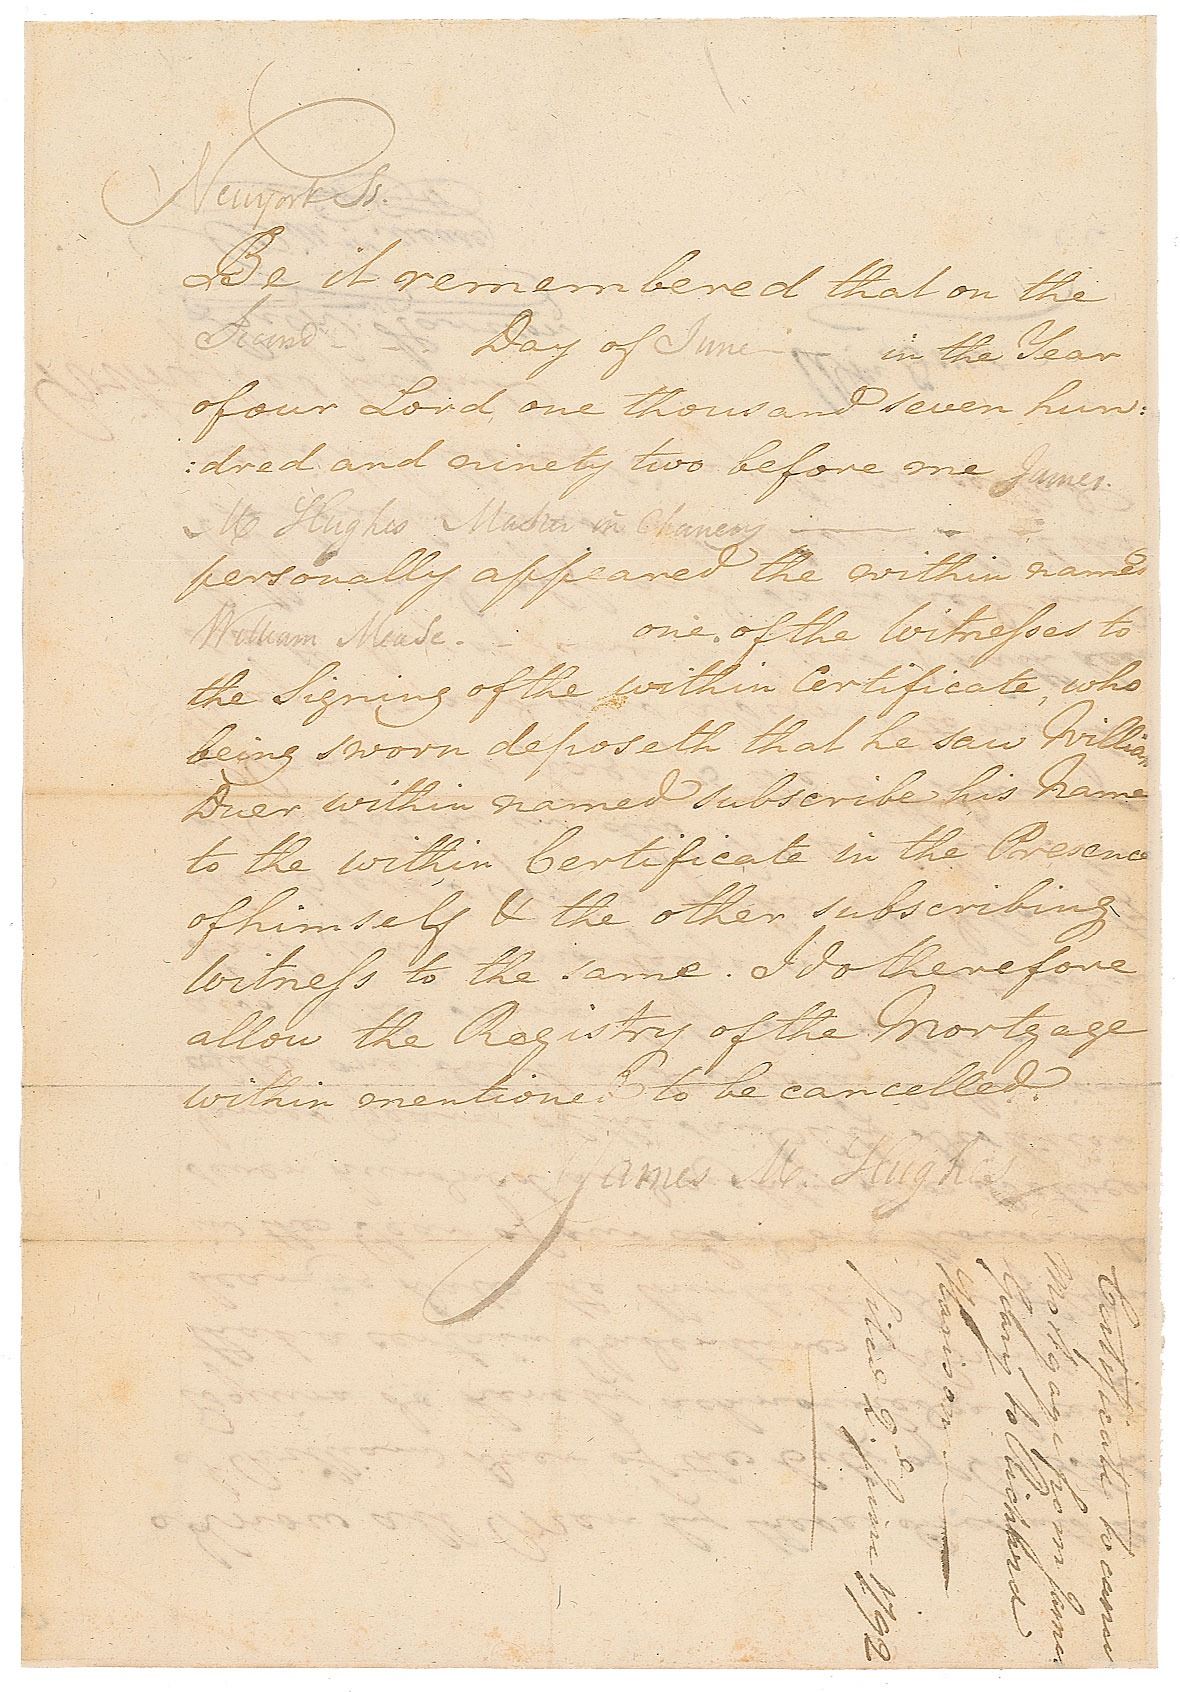 Newyork Ss.
Be it remembered that on the
Second Day of June in the Year
of our Lord one thousand seven hun:
:dred and ninety two before me James
M Hughes Master in Chancery
personally appeared the within named
William Meade. one of the Witnesses to
the Signing of the within Certificate, who
being sworn deposeth that he saw William
Duer within named subscribe his Name
to the within Certificate in the Presence
of himself & the other subscribing
Witness to the same. I do therefore
allow the Registry of the Mortgage
within mentioned to be cancelled.
James M. Hughes
Certificate to cance
Mortgage from Jame
to Richard
Harrison
Filed 2d. June 1792